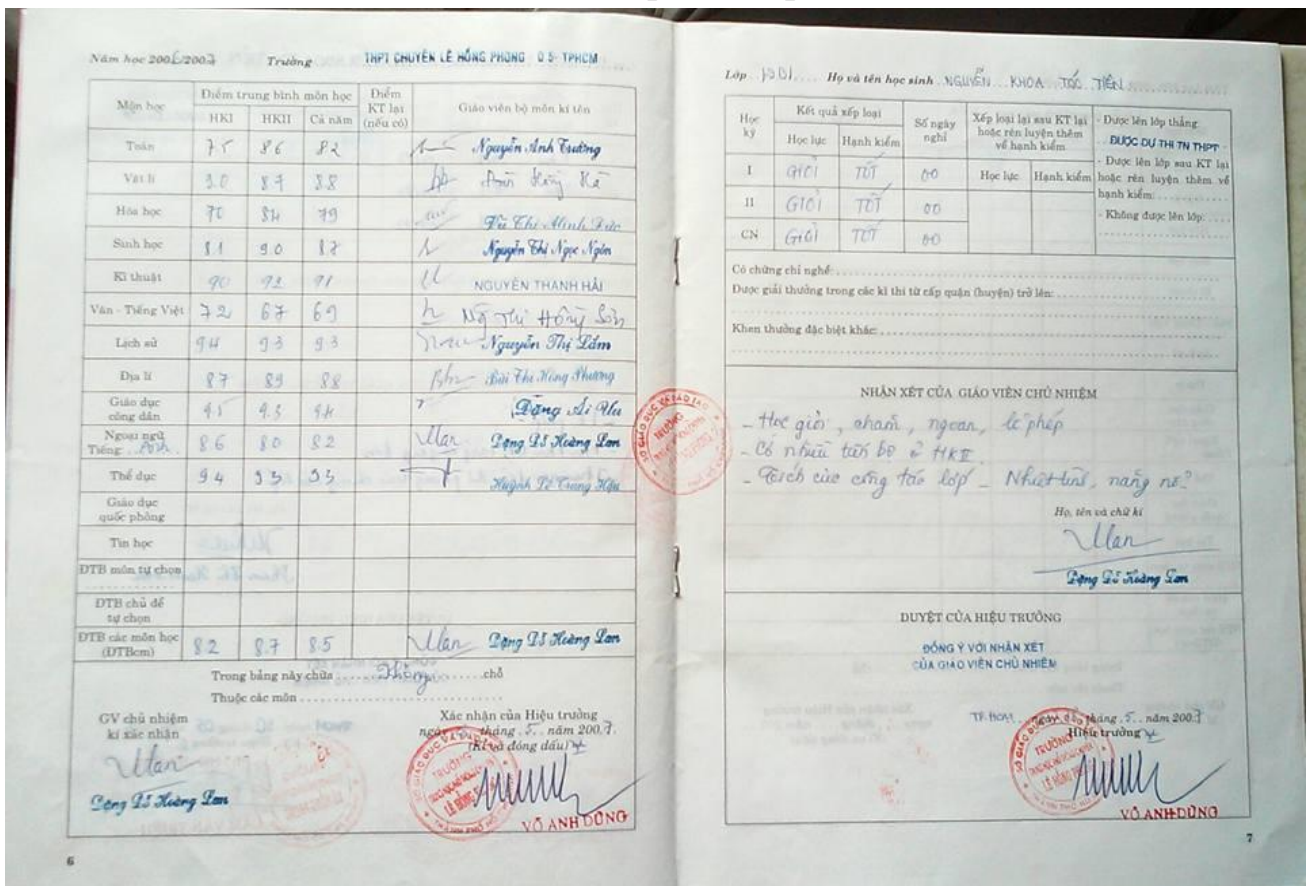 Năm học 2006/2007 Trường THPT CHUYÊN LÊ HỒNG PHONG Q 5- TPHCM
Môn học Điểm trung bình môn học Điểm KT lại (nếu có) Giáo viên bộ môn kí tên
HKI HKII Cả năm
Toán 7.5 8.6 8.2 Nguyễn Anh Trường
Vật lí 9.0 8.7 8.8
Hóa học 7.0 8.4 7.9 Vũ Thị Minh Đức
Sinh học 8.1 9.0 8.7 Nguyễn Thị Ngọc Ngôn
Kĩ thuật 9.0 9.2 9.1 NGUYỄN THANH HẢI
Văn - Tiếng Việt 7.2 6.7 6.9 Thị Hồng
Lịch sử 9.4 9.3 9.3 Nguyễn Thị Lắm
Địa lí 8.7 8.9 8.8 Bùi Thị Hồng Phương
Giáo dục công dân 9.5 9.3 9.4 Đặng Ái
Ngoại ngữ Tiếng: Anh 8.6 8.0 8.2 Đặng Đỗ Hoàng Lan
Thể dục 9.4 9.3 9.3 Huỳnh Lê Trung Hậu
Giáo dục quốc phòng
Tin học
ĐTB môn tự chọn
ĐTB chủ đề tự chọn
ĐTB các môn học (ĐTBcm) 8.2 8.7 8.5 Đặng Đỗ Hoàng Lan
Trong bảng này chữa Không chỗ
Thuộc các môn
GV chủ nhiệm kí xác nhận
Đặng Đỗ Hoàng Lan
Xác nhận của Hiệu trưởng
ngày tháng 5 năm 2007.
(Kí và đóng dấu)
VÕ ANH DŨNG
6
Lớp Họ và tên học sinh NGUYỄN KHOA TÓC TIÊN
Học kỳ Kết quả xếp loại Số ngày nghỉ Xếp loại lại sau KT lại hoặc rèn luyện thêm về hạnh kiểm
Học lực Hạnh kiểm Học lực Hạnh kiểm
I GIỎI TỐT 00
II GIỎI TỐT 00
CN GIỎI TỐT 00
- Được lên lớp thẳng
ĐƯỢC DỰ THI TN THPT
- Được lên lớp sau KT lại hoặc rèn luyện thêm về hạnh kiểm:
- Không được lên lớp:
Có chứng chỉ nghề:
Được giải thưởng trong các kì thi từ cấp quận (huyện) trở lên:
Khen thưởng đặc biệt khác:
NHẬN XÉT CỦA GIÁO VIÊN CHỦ NHIỆM
- Học giỏi, chăm, ngoan, lễ phép
- Có nhiều tiến bộ ở HKII.
- Tích cực công tác lớp - Nhiệt tình, năng nổ.
Họ, tên và chữ kí
Đặng Đỗ Hoàng Lan
DUYỆT CỦA HIỆU TRƯỞNG
ĐỒNG Ý VỚI NHẬN XÉT
CỦA GIÁO VIÊN CHỦ NHIỆM
TP.HCM, ngày tháng 5 năm 2007
Hiệu trưởng
VÕ ANH DŨNG
7